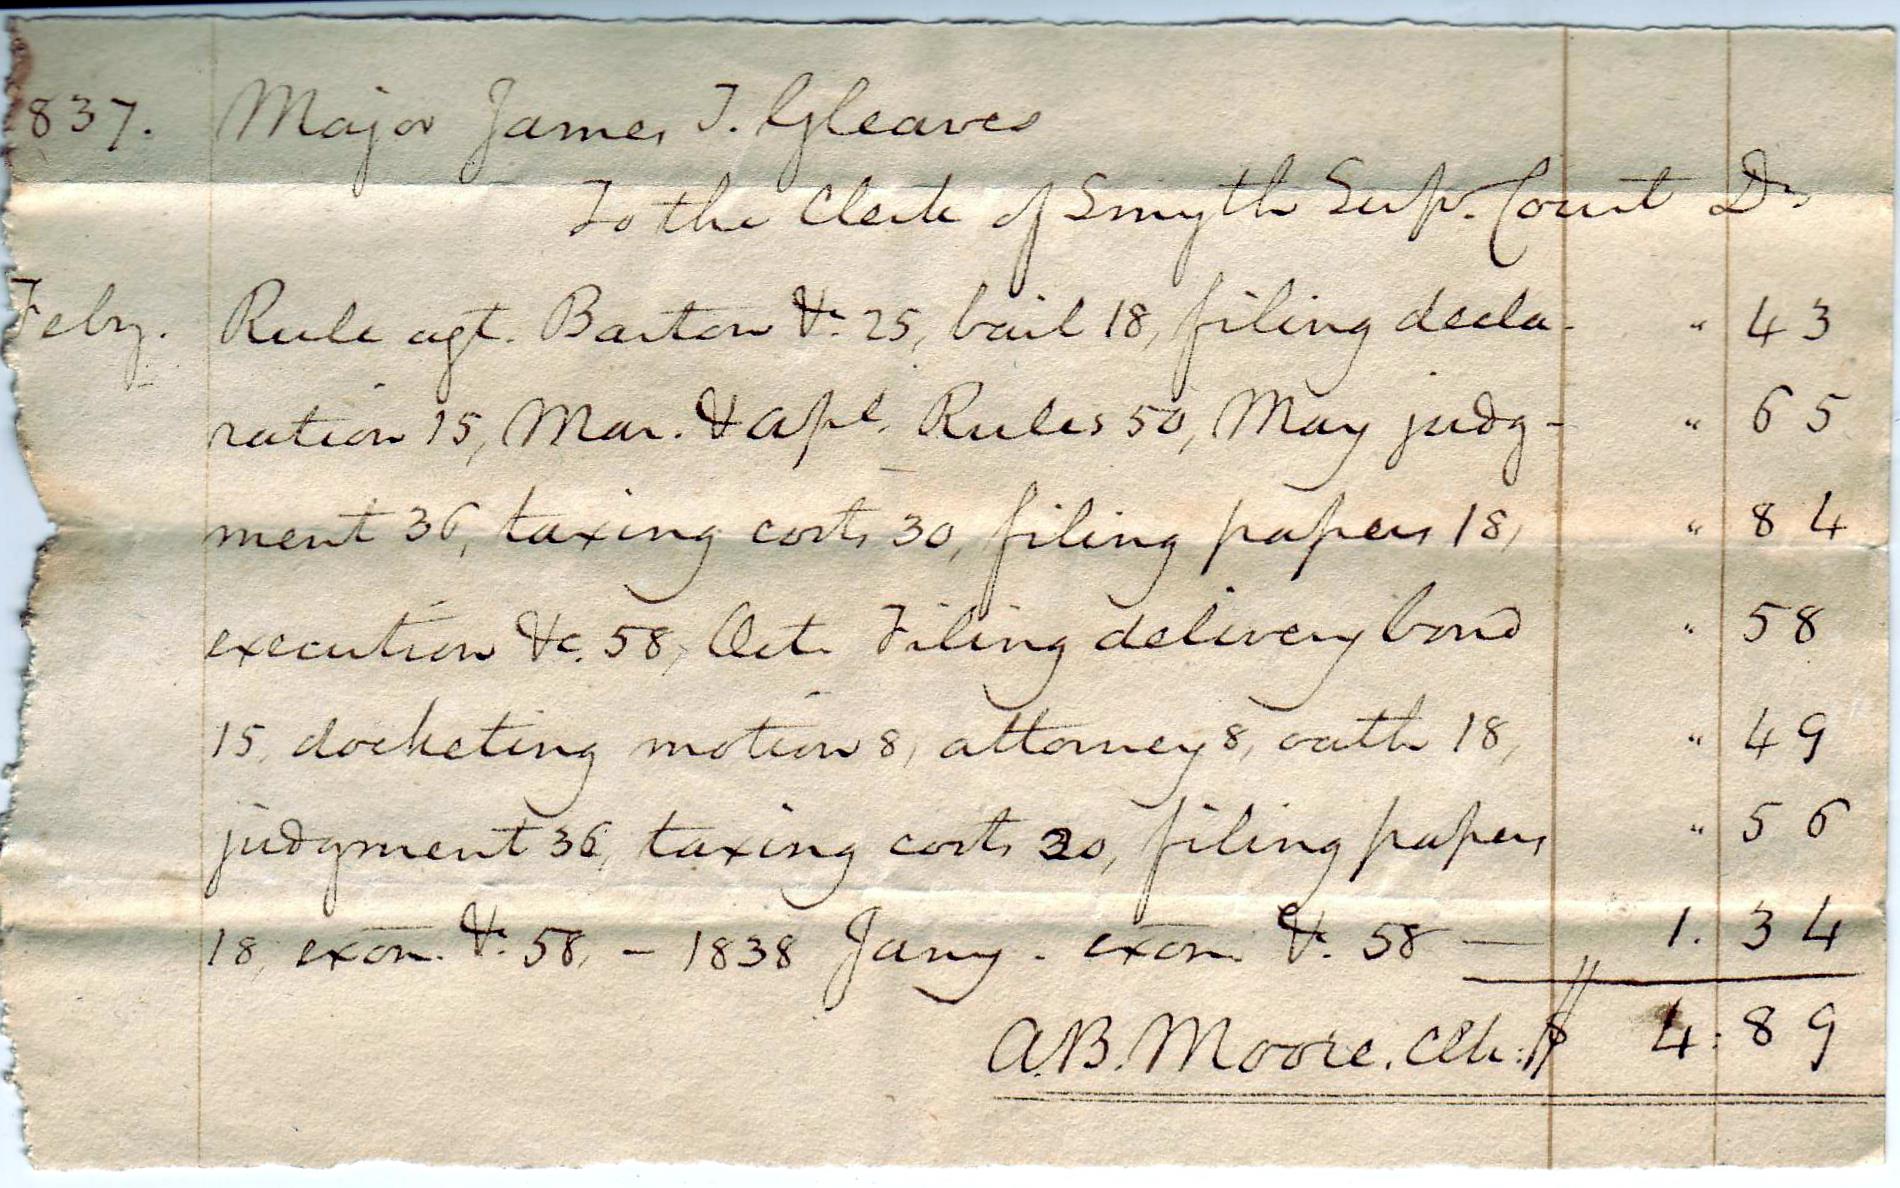 837. Major James T. Gleaves
To the Clerk of Smyth Sup. Court Dr
Feby. Rule agt. Barton &c. 25, bail 18, filing decla- " 43
ration 15, Mar. & Apl. Rules 50, May judg- " 65
ment 36, taxing costs 30, filing papers 18, " 84
execution &c. 58, Oct. Filing delivery bond " 58
15, docketing motion 8, attorney 8, oath 18, " 49
judgment 36, taxing costs 20, filing papers " 56
18, exon. &c. 58, - 1838 Jany. exon. &c. 58 — 1. 34
A.B. Moore. Clk: $ 4: 89